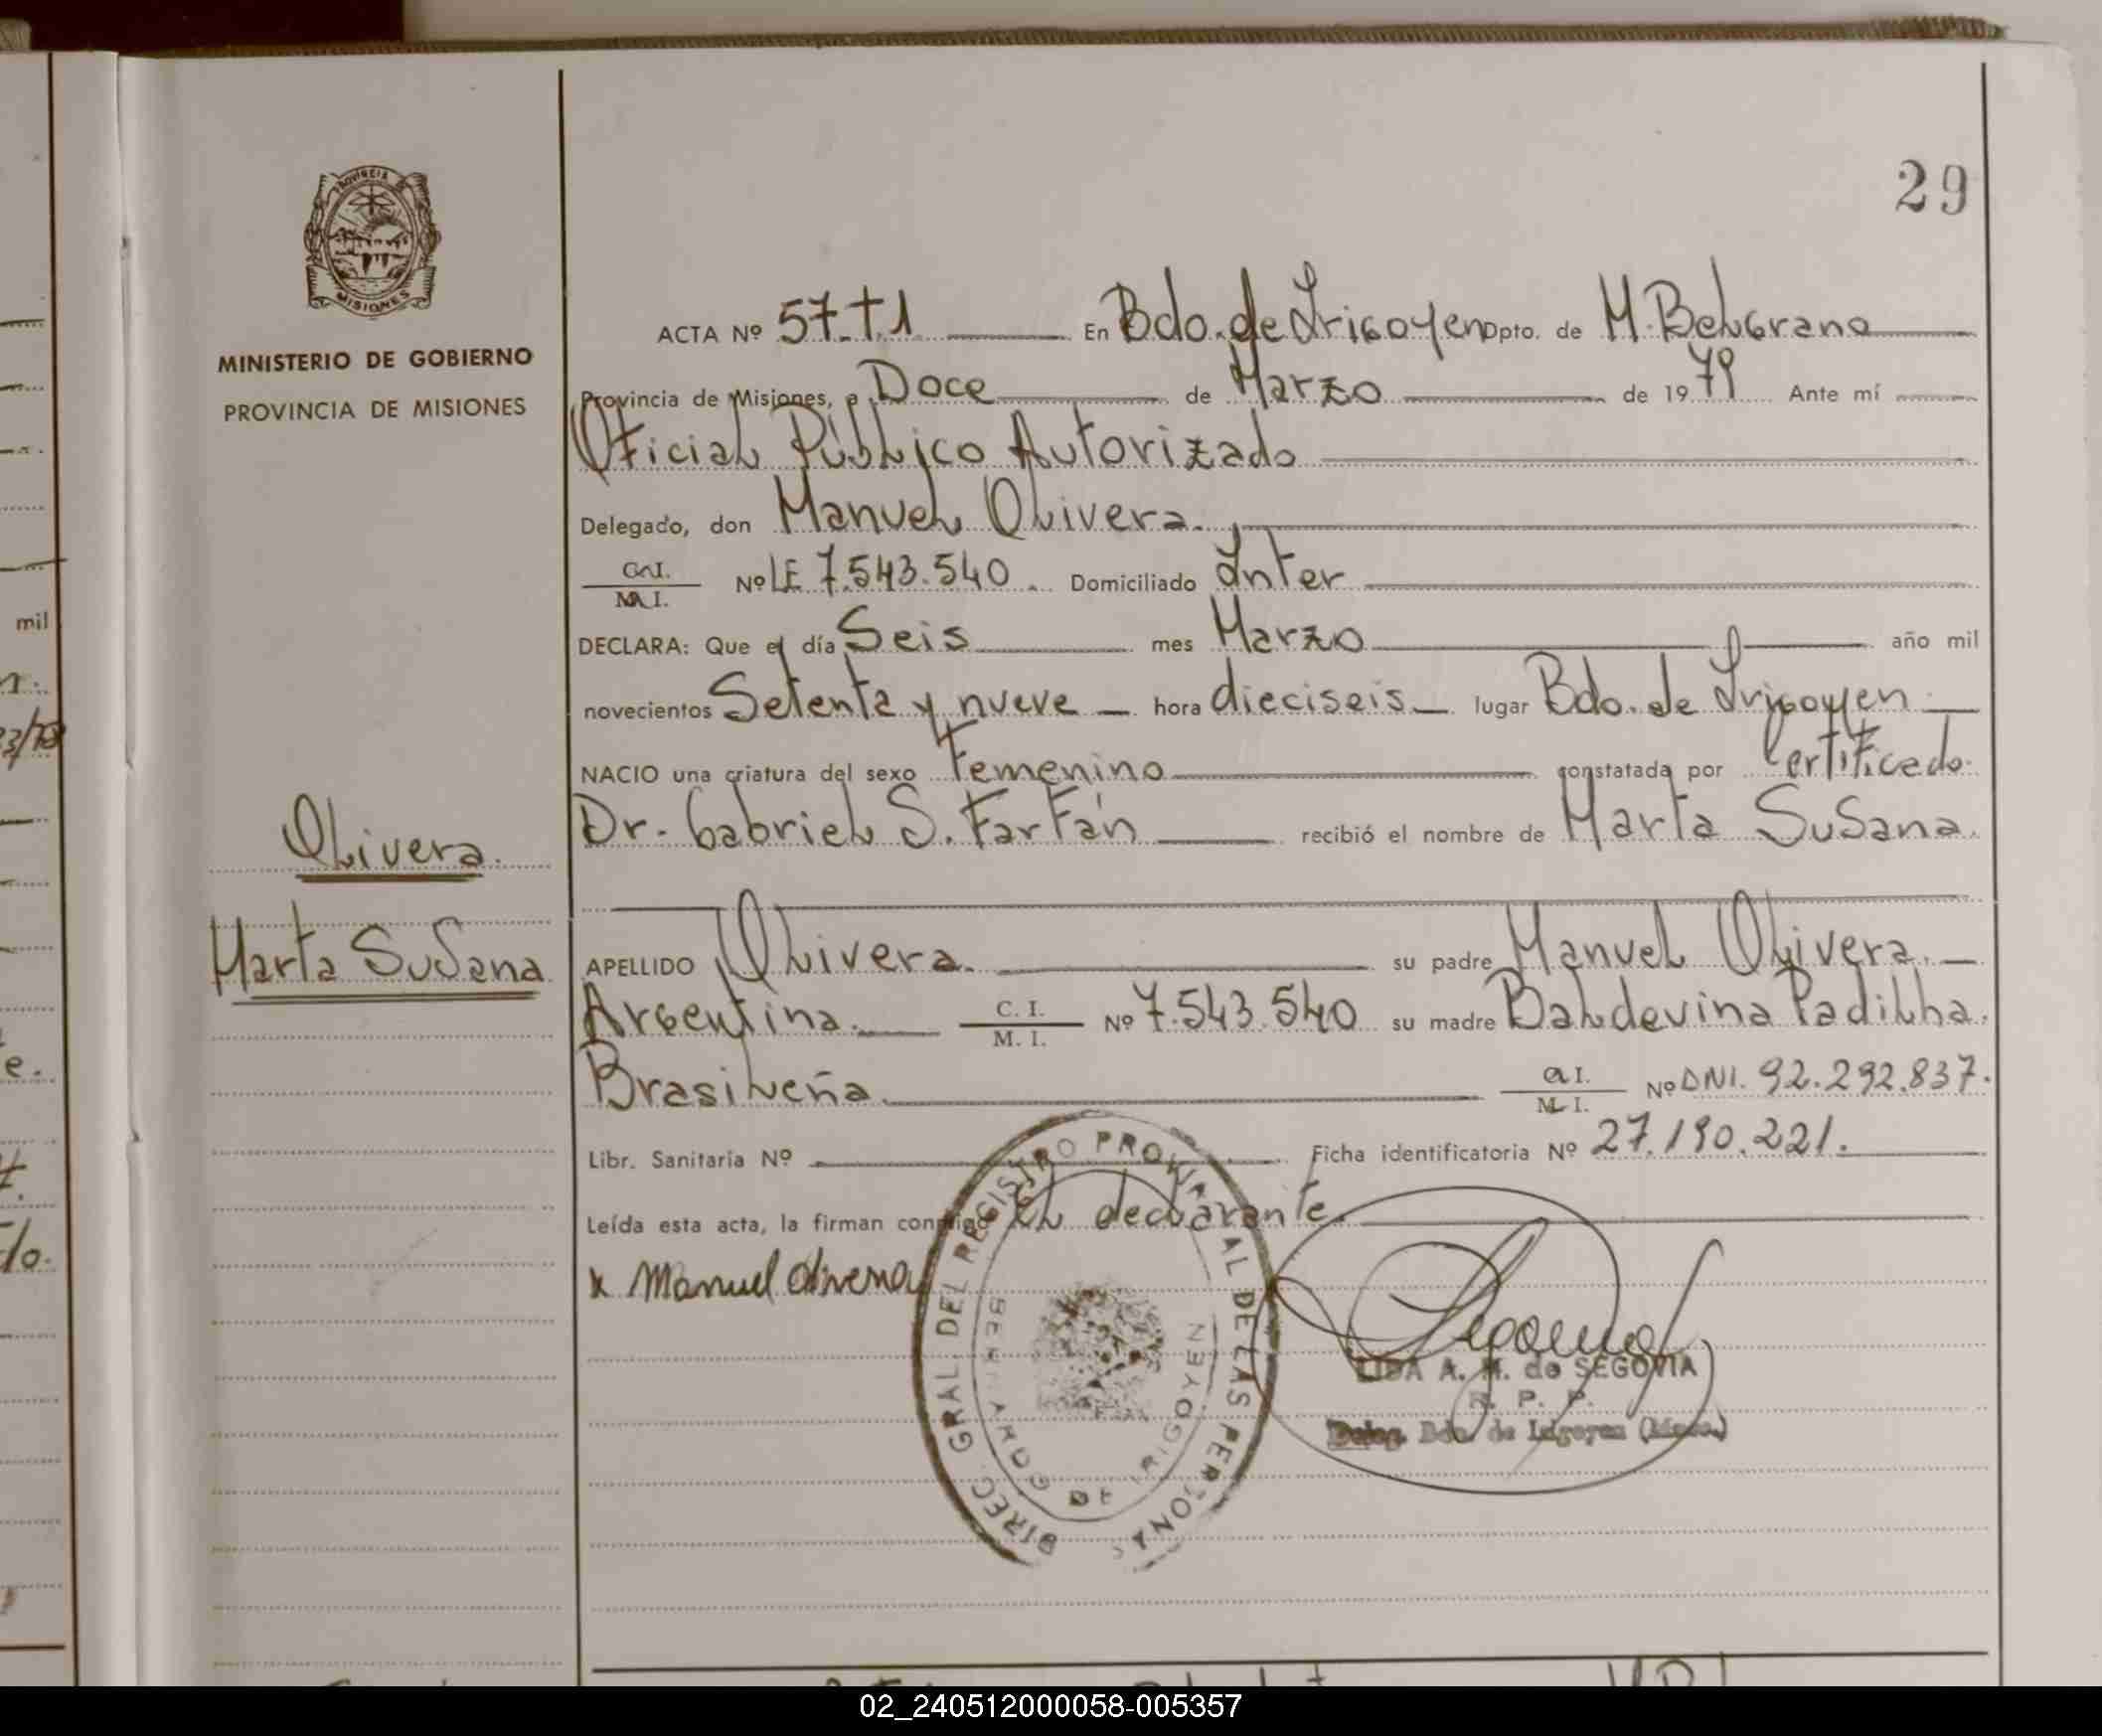 29
PROVINCIA DE
MISIONES
MINISTERIO DE GOBIERNO
PROVINCIA DE MISIONES
Olivera.
Marta Susana
ACTA Nº 57-T1 En Bdo. de Irigoyen Dpto. de M. Belgrano
Provincia de Misiones, a Doce de Marzo de 1979 Ante mí
Oficial Público Autorizado
Delegado, don Manuel Olivera.
C.I. / M.I. Nº LE 7.543.540 Domiciliado Inter
DECLARA: Que el día Seis mes Marzo año mil
novecientos Setenta y nueve hora dieciseis lugar Bdo. de Irigoyen
NACIO una criatura del sexo Femenino constatada por Certificado
Dr. Gabriel S. Farfán recibió el nombre de Marta Susana.
APELLIDO Olivera. su padre Manuel Olivera.
Argentina. C. I. / M. I. Nº 7.543.540 su madre Baldevina Padilha.
Brasileña. C.I. / M.I. Nº DNI. 92.292.837.
Libr. Sanitaria Nº Ficha identificatoria Nº 27.190.221.
Leída esta acta, la firman conmigo el declarante.
x Manuel Olivera
DIREC. GRAL. DEL REGISTRO PROVINCIAL DE LAS PERSONAS
BERNARDO DE IRIGOYEN
A. M. de SEGOVIA
R. P. P.
Deleg. Bdo. de Irigoyen (Mnes.)
mil
02_240512000058-005357